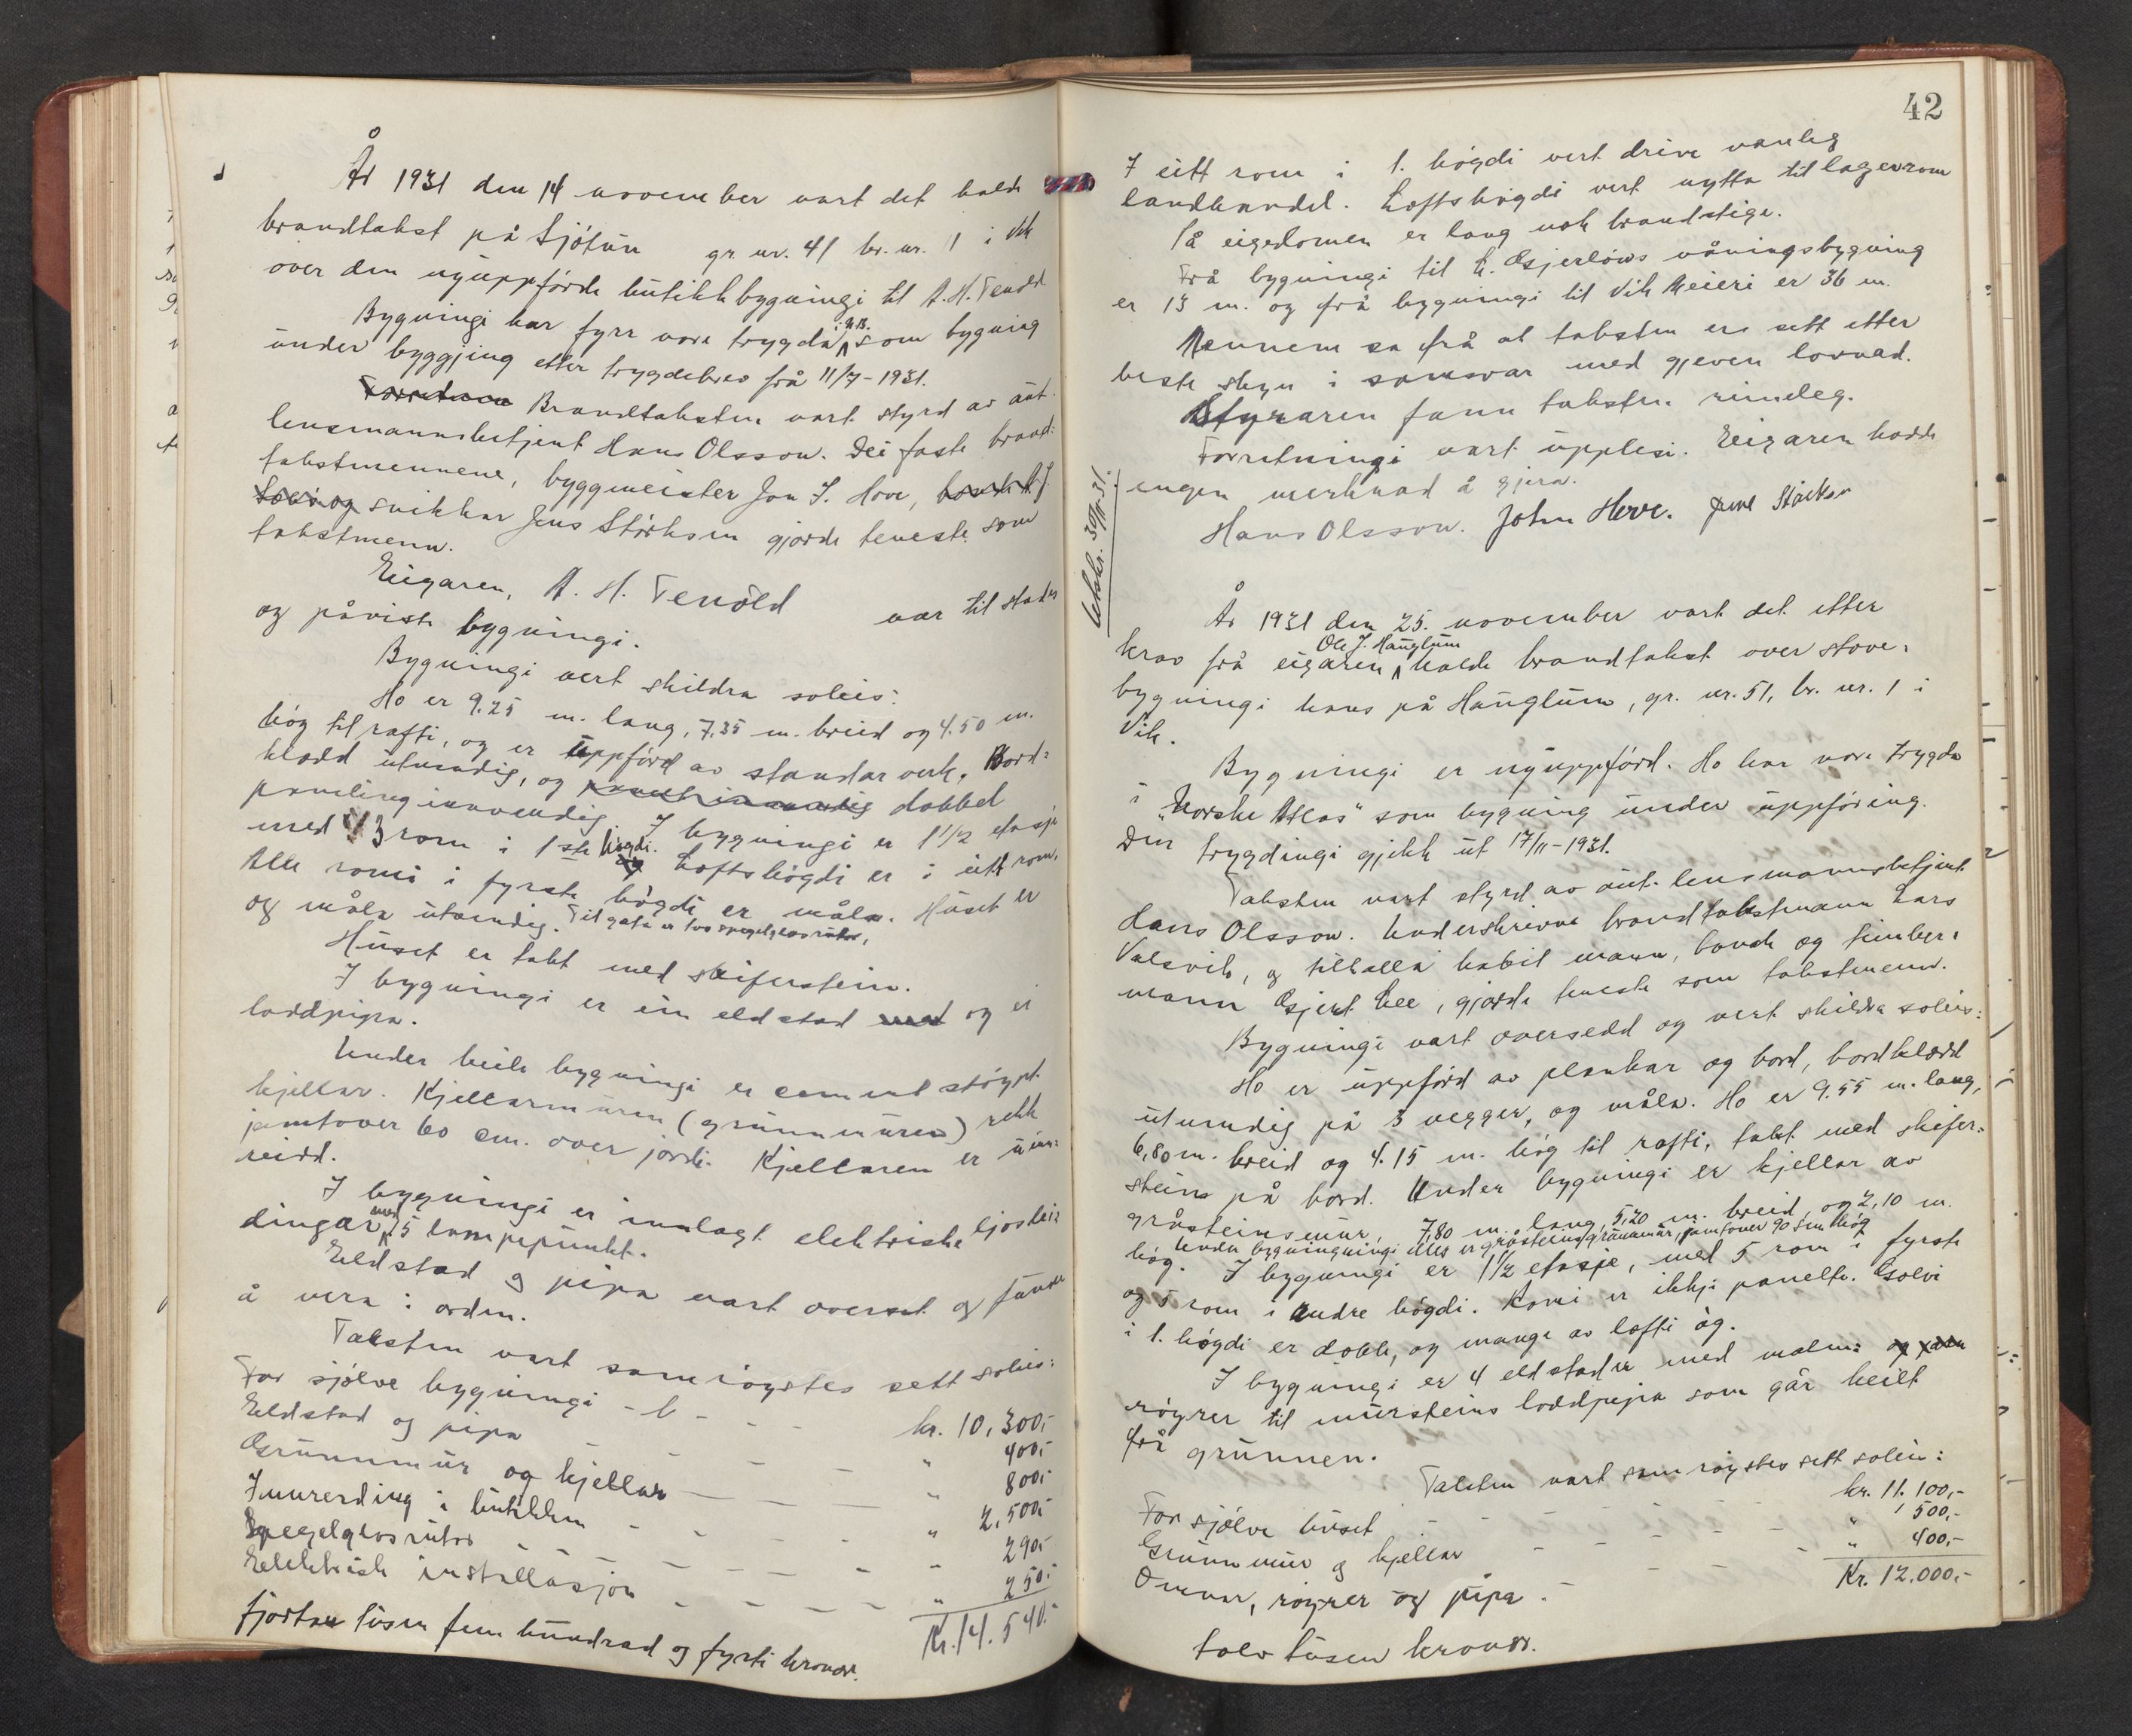 År 1931 den 14 november vart det halde
brandtakst på Sjötun gr. nr. 41 br. nr. 1 i Vik
over den nyuppförde butikkbygningi til A. H. Tenold
Bygningi har fyrr vore trygda i N.B. som bygning
under byggjing etter trygdebrev frå 11/7-1931.
Brandtaksten vart styrd av aut.
lensmannsbetjent Hans Olsson. Dei faste brand-
takstmennene, byggmeister Jon J. Hove,
snikkar Jens Stårksen gjorde teneste som
takstmenn.
Eigaren, A. H. Tenold var til stades
og påviste bygningi.
Bygningi vert skildra soleis:
Ho er 9.25 m. lang, 7.35 m. breid og 4.50 m.
hög til rafti, og er uppförd av standarverk. Bord-
klædd utvendig, og dobbel
paneling innvendig. I bygningi er 1 1/2 etasje
med 3 rom i 1ste högdi. Loftshögdi er i eitt rom.
Alle romi i fyrste högdi er måla. Huset er
og måla utvendig. Til gata er two spegelglasrutor.
Huset er takt med skiferstein.
I bygningi er ein eldstad og ei
loddpipa.
Under heile bygningi er cement stöypt
kjellar. Kjellarmuren (grunnmuren) rekk
jamtover 60 cm. over jordi. Kjellaren er uinn-
reidd.
I bygningi er innlagt elektriske ljoslei-
dingar med 5 lampepunkt.
Eldstad og pipa vart overset og funde
å vera i orden.
Taksten vart samröystes sett soleis:
For sjölve bygningi - - - - kr. 10,300,-
Eldstad og pipa - - - - " 400,-
Grunnmur og kjellar - - - " 800,-
Innreiding i butikken - - - " 2,500,-
Spegelglasrutor - - - - " 290,-
Elektrisk installasjon - - - - " 250,-
Kr. 14.540.-
fjortan tusen fem hundrad og fyrti kronor.
42
I eitt rom i 1. högdi vert drive vanleg
landhandel. Loftshögdi vert nytta til lagerrom
På eigedomen er lang nok brandstige.
Frå bygningi til L. Gjerlöws våningsbygning
er 13 m. og frå bygningi til Vik Meieri er 36 m.
Mennene sa frå at taksten er sett etter
beste skyn i samsvar med gjeven lovnad.
Styraren fann taksten rimeleg.
Forretningi vart upplesi. Eigaren hadde
ingen merknad å gjera.
Hans Olsson. John Hove. Jens Stårksen
Utskr. 30/11-31.
År 1931 den 25. november vart det etter
krav frå eigaren Ole J. Hauglum halde brandtakst over stove-
bygningi hans på Hauglum, gr. nr. 51, br. nr. 1 i
Vik.
Bygningi er nyuppförd. Ho har vore trygda
i "Norske Atlas" som bygning under uppföring.
Den trygdingi gjekk ut 17/11-1931.
Taksten vart styrd av aut. lensmannsbetjent
Hans Olsson. Underskrivne brandtakstmann Lars
Valsvik, og tilkalla habil mann, bonde og timber-
mann Gjert Lee, gjorde teneste som takstmenn.
Bygningi vart oversedd og vert skildra soleis:
Ho er uppförd av plankar og bord, bordklædd
utvendig på 3 vegger, og måla. Ho er 9.55 m. lang,
6,80 m. breid og 4.15 m. hög til rafti, takt med skifer-
steins på bord. Under bygningi er kjellar av
gråsteinsmur, 7,80 m. lang, 5,20 m. breid, og 2,10 m.
hög. Under bygningningi elles er gråsteins grunnmur, jamtover 90 sm hög
I bygningi er 1 1/2 etasje, med 5 rom i fyrste
og 5 rom i andre högdi. Romi er ikkje panelte. Golvi
i 1. högdi er doble, og mange av lofti òg.
I bygningi er 4 eldstader med malm-
röyrer til mursteins loddpipa som går heilt
frå grunnen.
Taksten vart samröystes sett soleis:
For sjölve huset - - - - - kr. 11.100,-
Grunnmur og kjellar - - - - " 500,-
Omnar, röyrer og pipa - - - " 400,-
Kr. 12.000,-
tolv tusen kronor.